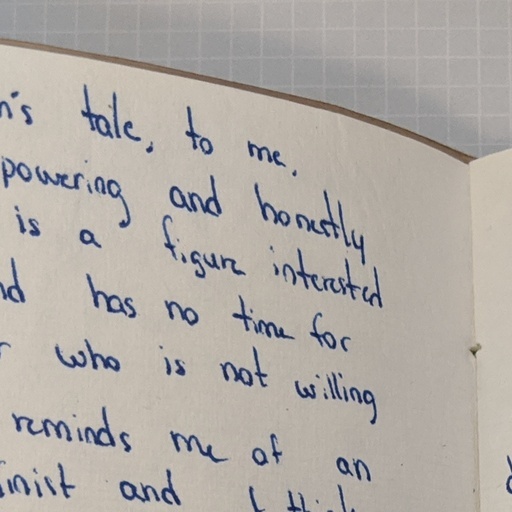 n's tale, to me,
powering and honestly
is a figure interested
nd has no time for
r who is not willing
reminds me of an
inist and I think